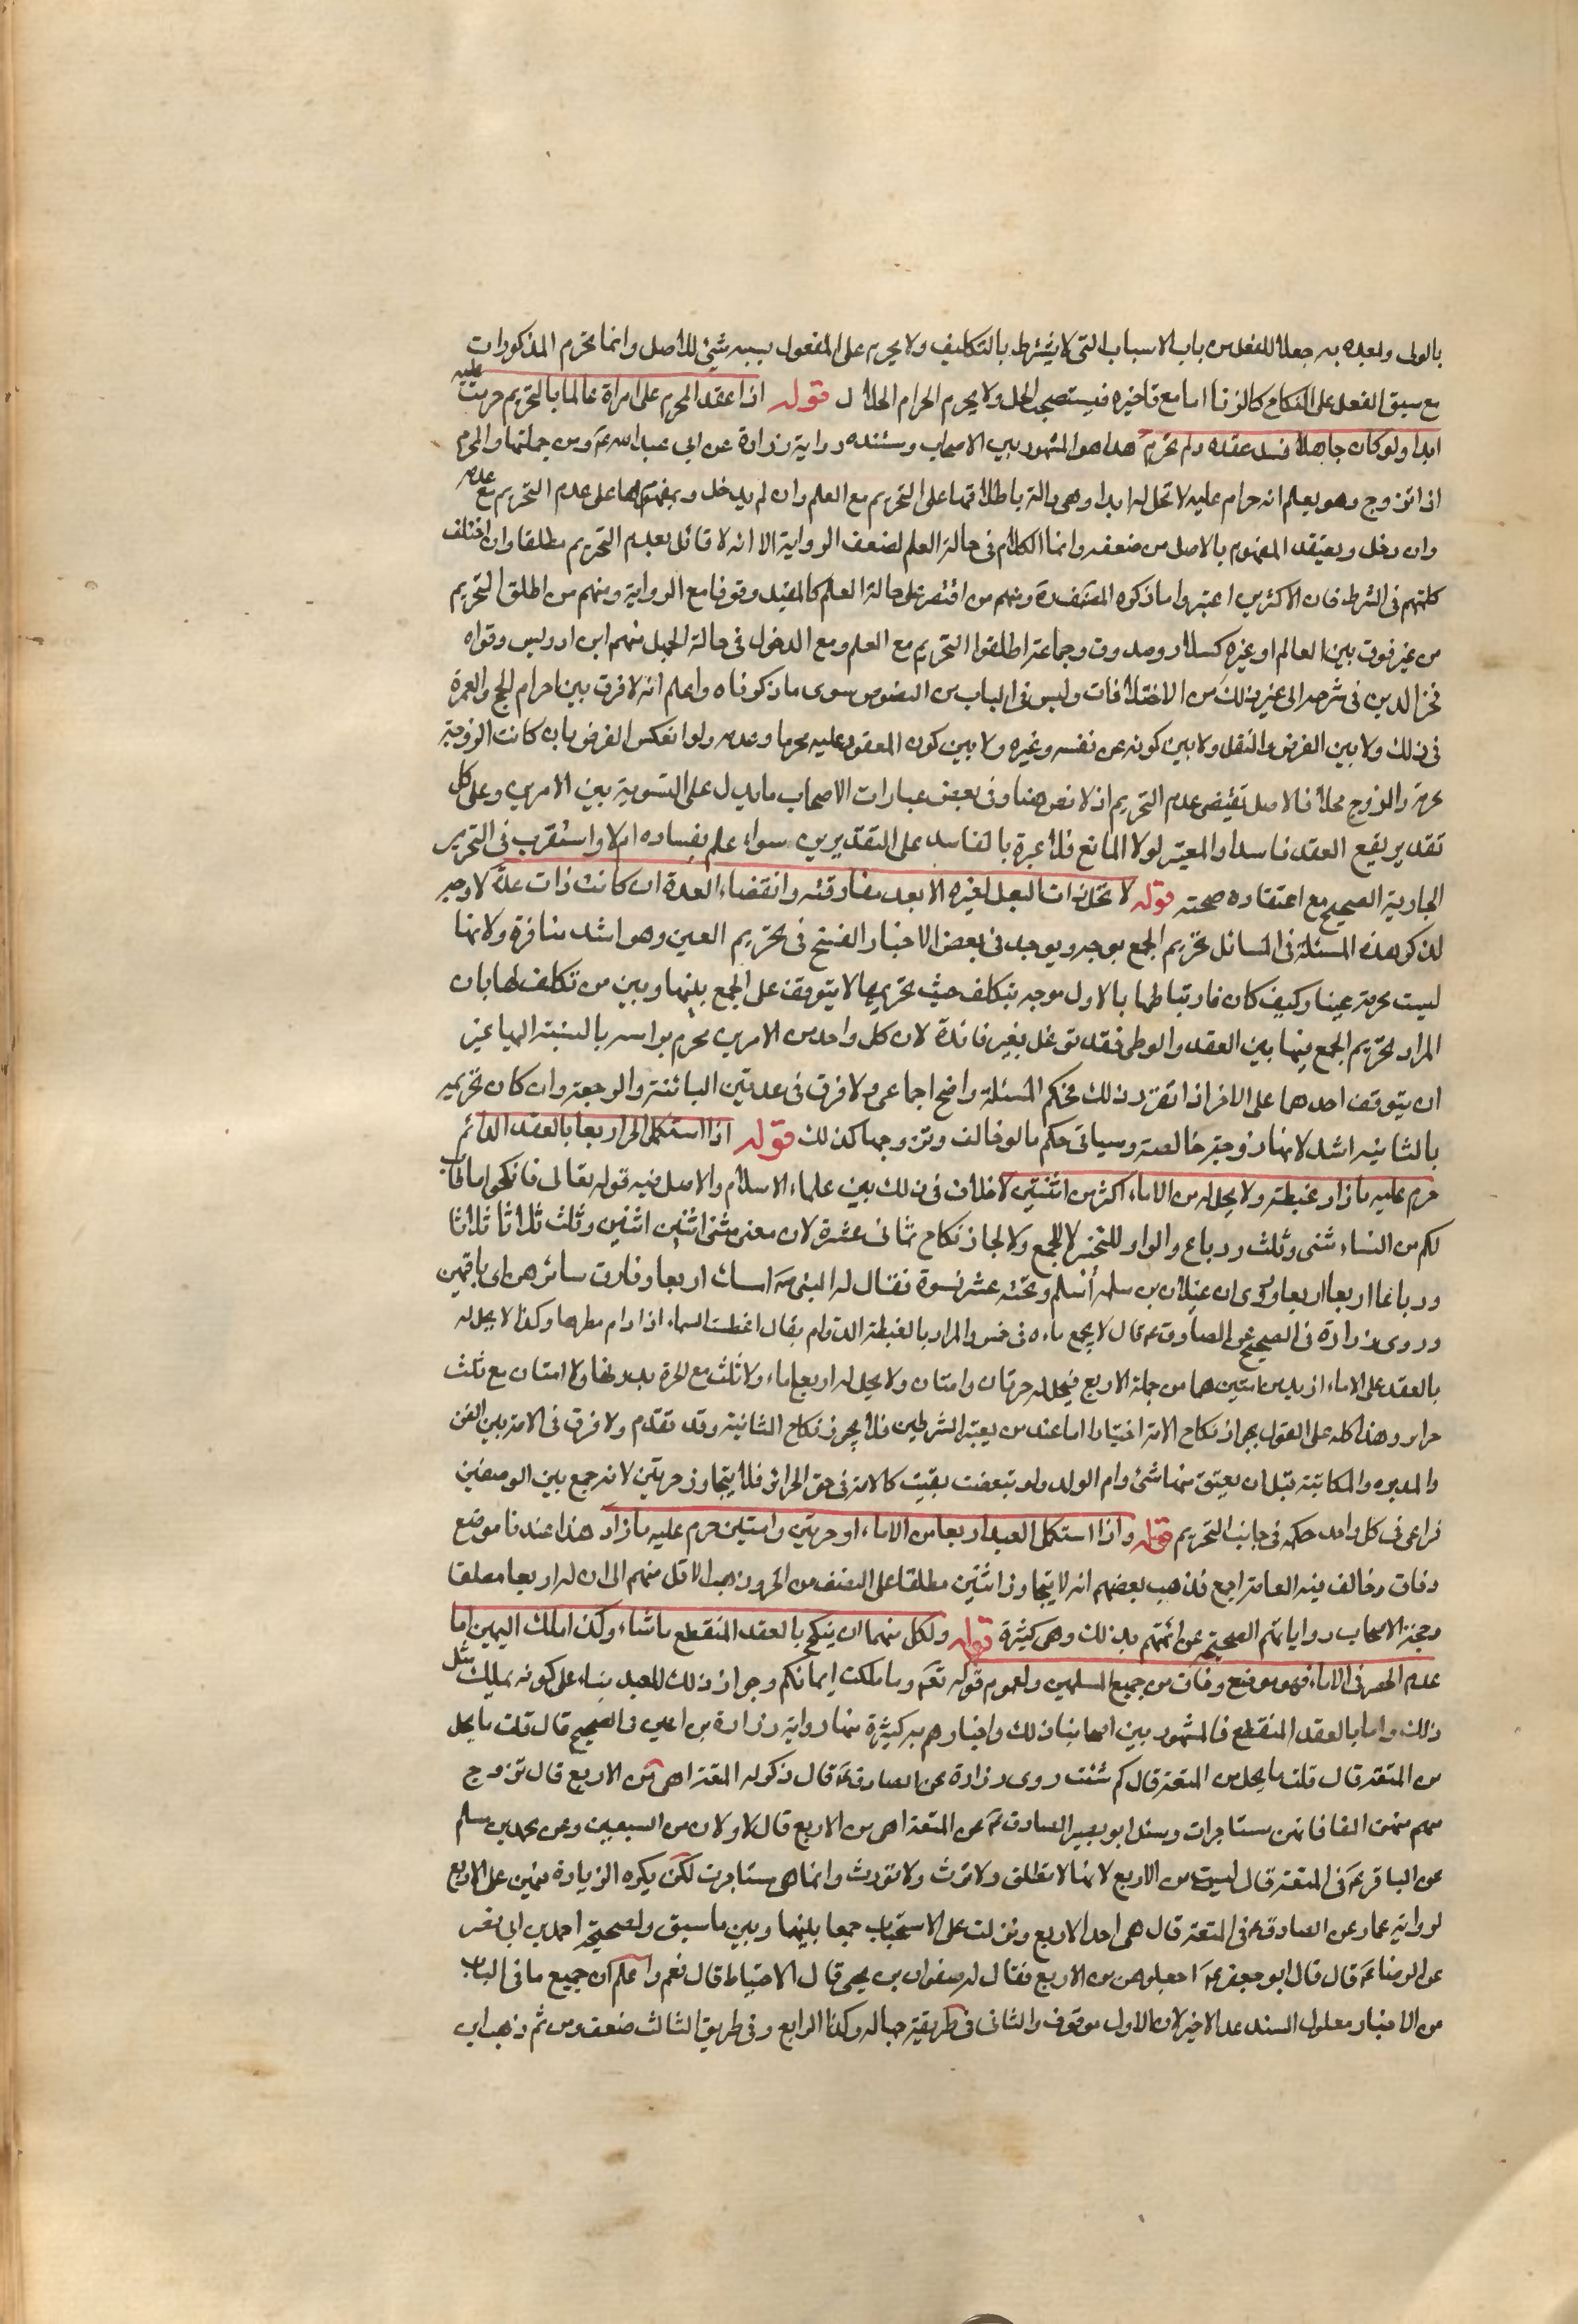 بالولى وبعده به جعلا للفعل من باب الاسباب التى لا يشترط بالتكليف ولا يحرم على المفعول بسببه شئ للاصل وانما تحرم المذكورات
مع سبق الفعل على النكاح كالزنا اما مع تاخيره فيستصحب الحل ولا يحرم الحرام الحلال قوله اذا عقد المحرم على امراة عالما بالتحريم حرمت عليه
ابدا ولو كان جاهلا فسد عقده ولم تحرم هذا هو المشهور بين الاصحاب ومستنده رواية زرارة عن ابي عبد الله عم ومن جملتها والمحرم
اذا تزوج وهو يعلم انه حرام عليه لا تحل له ابدا وهى دالة باطلاقها على التحريم مع العلم وان لم يدخل وبمفهومها على عدم التحريم مع عدمه
وان دخل ويعتضد المفهوم بالاصل من ضعفه وانما الكلام فى حالة العلم لضعف الرواية الا انه لا قائل بعدم التحريم مطلقا وان اختلف
كلمتهم فى الشرط فان الاكثرين اعتبروا ما ذكره المصنف ره ومنهم من اقتصر على حالة العلم كالمفيد وقوفا مع الرواية ومنهم من اطلق التحريم
من غير فرق بين العالم او غيره كسلار وصدوق وجماعة اطلقوا التحريم مع العلم ومع الدخول فى حالة الجهل منهم ابن ادريس وقواه
فخر الدين فى شرحه الى غير ذلك من الاختلافات وليس فى الباب من النصوص سوى ما ذكرناه واعلم انه لا فرق بين احرام الحج والعمرة
فى ذلك ولا بين الفرض والنفل ولا بين كونه عن نفسه وغيره ولا بين كون المعقود عليه محرما وعدمه ولو انعكس الفرض بان كانت الزوجة
محرمة والزوج محلا فالاصل تقتضى عدم التحريم اذ لا نص هنا وفى بعض عبارات الاصحاب ما يدل على التسوية بين الامرين وعلى كل
تقدير يقع العقد فاسدا والمعتبر لولا المانع فلا عبرة بالفاسد على التقديرين سواء علم بفساده ام لا واستقرب فى التحرير
الجارية الصحيح مع اعتقاده صحته قوله لا تحل ذات البعل لغيره الا بعد مفارقته وانقضاء العدة ان كانت ذات عدة لا وجه
لذكر هذه المسئلة فى المسائل تحريم الجمع بوجه ويوجد فى بعض الاخبار الفسخ فى تحريم العين وهو اشد منافرة ولانها
ليست محرمة عينا وكيف كان فارتباطها بالاول موجه بتكلف حيث تحريمها لا يتوقف على الجمع بينهما وبين من تكلف لها بان
المراد تحريم الجمع بينها بين العقد والوطى فقد توغل بغير فائدة لان كل واحد من الامرين محرم براسه بالنسبة اليها غير
ان يتوقف احدهما على الاخر اذا تقرر ذلك فحكم المسئلة واضح اجماعى ولا فرق فى عدتين البائنة والرجعة وان كان تحريمه
بالثانيه اشد لانها زوجية خالصة وسياتى حكم ما لو خالف وتزوجها كذلك قوله اذا استكمل الحر اربعا بالعقد الدائم
حرم عليه ما زاد غبطة ولا يحل له من الاماء اكثر من اثنتين لا خلاف فى ذلك بين علماء الاسلام والاصل فيه قوله تعالى فانكحوا ما طاب
لكم من النساء مثنى وثلث ورباع والواو للتخيير لا للجمع ولا لجاز نكاح ثمانى عشرة لان معنى مثنى اثنين اثنين وثلث ثلاثا ثلاثا
ورباعا اربعا اربعا وروى ان غيلان بن سلمه أسلم وتحته عشر نسوة فقال له النبى ص امسك اربعا وفارق سائرهن اى باقيهن
وروى زرارة فى الصحيح عن الصادق عم قال لا يجمع ماءه فى خمس والمراد بالغبطة الدوام يقال اغبطت السماء اذا دام مطرها وكذا لا يحل له
بالعقد على الاماء ازيد من امتين هما من جملة الاربع فيحل له حرتان وامتان ولا يحل له اربع اماء ولا ثلث مع الحرة بدونها ولا امتان مع ثلث
حراير وهذا كله على القول بجواز نكاح الامة اختيارا اما عند من يعتبر الشرطين فلا يجوز نكاح الثانية وقد تقدم ولا فرق فى الامة بين القن
والمدبره والمكاتبة قبل ان يعتق منها شئ وام الولد ولو تبعضت بقيت كالامة فى حق الحرائر فلا يتجاوز حرتين لانه جمع بين الوصفين
فراعى فى كل واحد حكمه فى جانب التحريم قوله واذا استكمل العبد اربعا من الاماء او حرتين وامتين حرم عليه ما زاد هذا عندنا موضع
وفاق وخالف فيه العامة اجمع فذهب بعضهم انه لا يتجاوز اثنتين مطلقا على النصف من الحر وذهب الاقل منهم الى ان له اربعا مطلقا
وحجة الاصحاب رواياتهم الصحيحة عن ائمتهم بذلك وهى كثيرة قوله ولكل منهما ان ينكح بالعقد المنقطع ما شاء وكذا ملك اليمين اما
عدم الحصر فى الاماء فهو موضع وفاق من جميع المسلمين ولعموم قوله تعم وما ملكت ايمانكم وجواز ذلك للعبد بناء على كونه يملك مثل
ذلك واما بالعقد المنقطع فالمشهور بين اصحابنا ذلك واخبارهم به كثيرة منها رواية زرارة بن اعين فى الصحيح قال قلت ما يحل
من المتعة قال قلت ما يحل من المتعة قال كم شئت روى زرارة عن الصادق عم قال ذكر له المتعة اهى من الاربع قال تزوج
منهن الفا فانهن مستاجرات وسئل ابو بصير الصادق عم عن المتعة اهى من الاربع قال لا ولا من السبعين وعن محمد بن مسلم
عن الباقر عم فى المتعة قال ليست من الاربع لانها لا تطلق ولا ترث ولا تورث وانما هى مستاجرت لكن يكره الزيادة فيهن على الاربع
لرواية عمار عن الصادق عم فى المتعة قال هى احد الاربع ونزلت على الاستحباب جمعا بينها وبين ما سبق ولصحيحة احمد بن ابى نصر
عن الرضا عم قال قال ابو جعفر عم اجعلوهن من الاربع فقال له صفوان بن يحيى قال الاحتياط قال نعم واعلم ان جميع ما فى الباب
من الاخبار معلول السند عدا الاخير لان الاول موقوف والثانى فى طريقة جهاله وكذا الرابع وفى طريق الثالث ضعف ومن ثم ذهب ابن